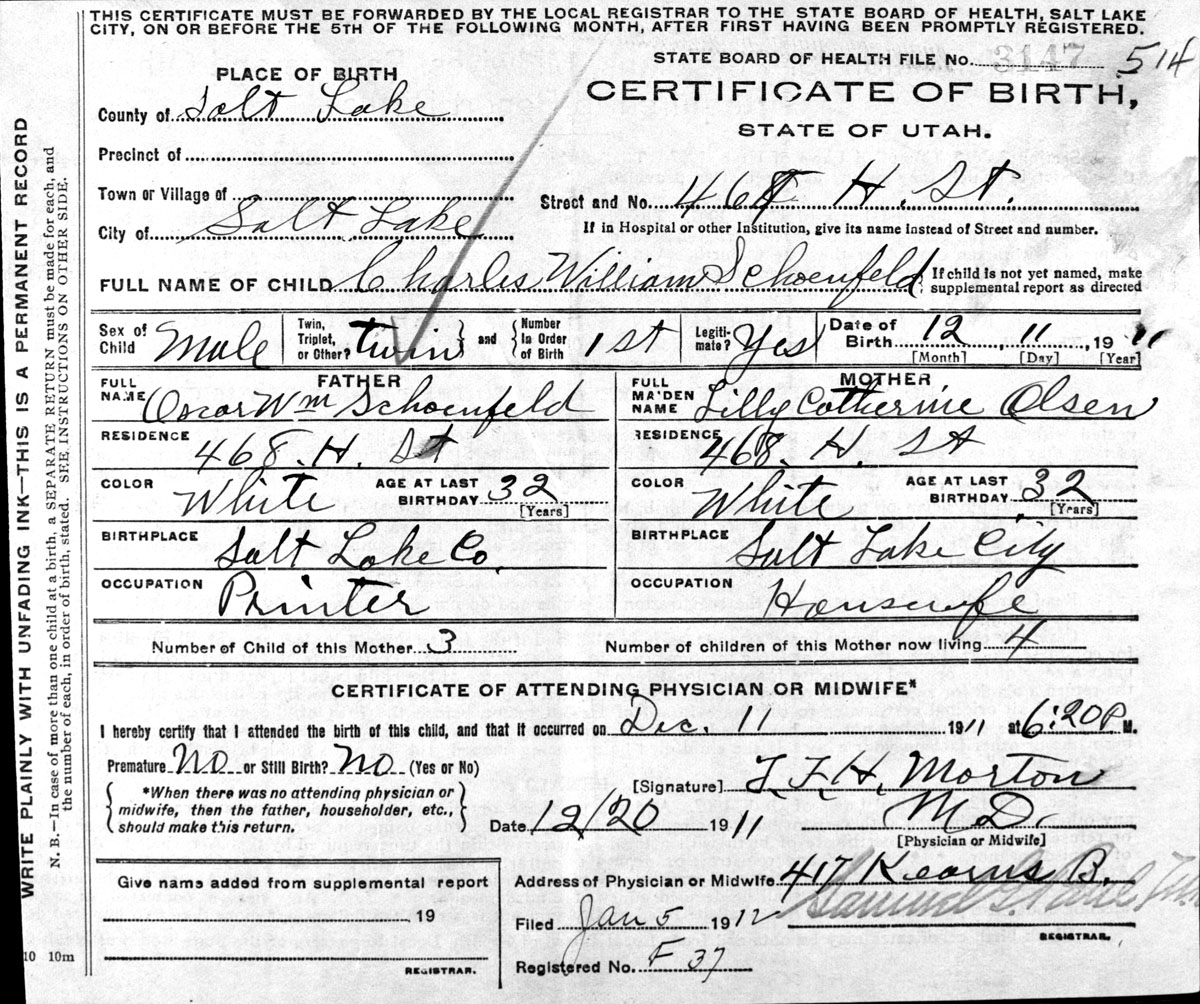 THIS CERTIFICATE MUST BE FORWARDED BY THE LOCAL REGISTRAR TO THE STATE BOARD OF HEALTH, SALT LAKE
CITY, ON OR BEFORE THE 5TH OF THE FOLLOWING MONTH, AFTER FIRST HAVING BEEN PROMPTLY REGISTERED.
STATE BOARD OF HEALTH FILE No. 3147 514
PLACE OF BIRTH
CERTIFICATE OF BIRTH,
STATE OF UTAH.
County of Salt Lake
Precinct of
Town or Village of
Street and No. 468 H. St.
City of Salt Lake
If in Hospital or other Institution, give its name instead of Street and number.
FULL NAME OF CHILD Charles William Schoenfeld
If child is not yet named, make
supplemental report as directed
Sex of Child Male
Twin, Triplet, or Other? twin and Number In Order of Birth 1st
Legitimate? Yes
Date of Birth 12, 11, 1911
[Month] [Day] [Year]
FATHER
MOTHER
FULL NAME Oscar Wm Schoenfeld
FULL MAIDEN NAME Lilly Catherine Olsen
RESIDENCE 468. H. St
RESIDENCE 468. H. St
COLOR White AGE AT LAST BIRTHDAY 32 [Years]
COLOR White AGE AT LAST BIRTHDAY 32 [Years]
BIRTHPLACE Salt Lake Co.
BIRTHPLACE Salt Lake City
OCCUPATION Printer
OCCUPATION Housewife
Number of Child of this Mother 3
Number of children of this Mother now living 4
CERTIFICATE OF ATTENDING PHYSICIAN OR MIDWIFE*
I hereby certify that I attended the birth of this child, and that it occurred on Dec. 11 1911 at 6:20 P M.
Premature No or Still Birth? No (Yes or No)
*When there was no attending physician or
midwife, then the father, householder, etc.,
should make this return.
[Signature] T. F. H. Morton
M.D.
[Physician or Midwife]
Date 12/20 1911
Give name added from supplemental report
19
REGISTRAR.
Address of Physician or Midwife 417 Kearns B.
Filed Jan 5 1912
Samuel G. Paul
REGISTRAR.
Registered No. F 37
10 10m
WRITE PLAINLY WITH UNFADING INK—THIS IS A PERMANENT RECORD
N. B.—In case of more than one child at a birth, a SEPARATE RETURN must be made for each, and
the number of each, in order of birth, stated. SEE INSTRUCTIONS ON OTHER SIDE.